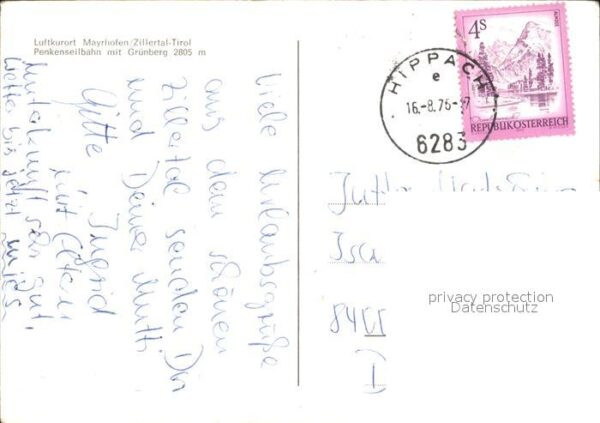 Luftkurort Mayrhofen/Zillertal-Tirol
Penkenseilbahn mit Grünberg 2805 m
Viele Urlaubsgrüße
aus dem schönen
Zillertal senden Dir
und Deiner Mutti
Gitte Ingrid
mit Eltern
Unterkunft sehr gut,
Wetter bis jetzt
4 S
ALMSEE
REPUBLIK ÖSTERREICH
HIPPACH
e
16.-8.76-
6283
privacy protection
Datenschutz
84
D